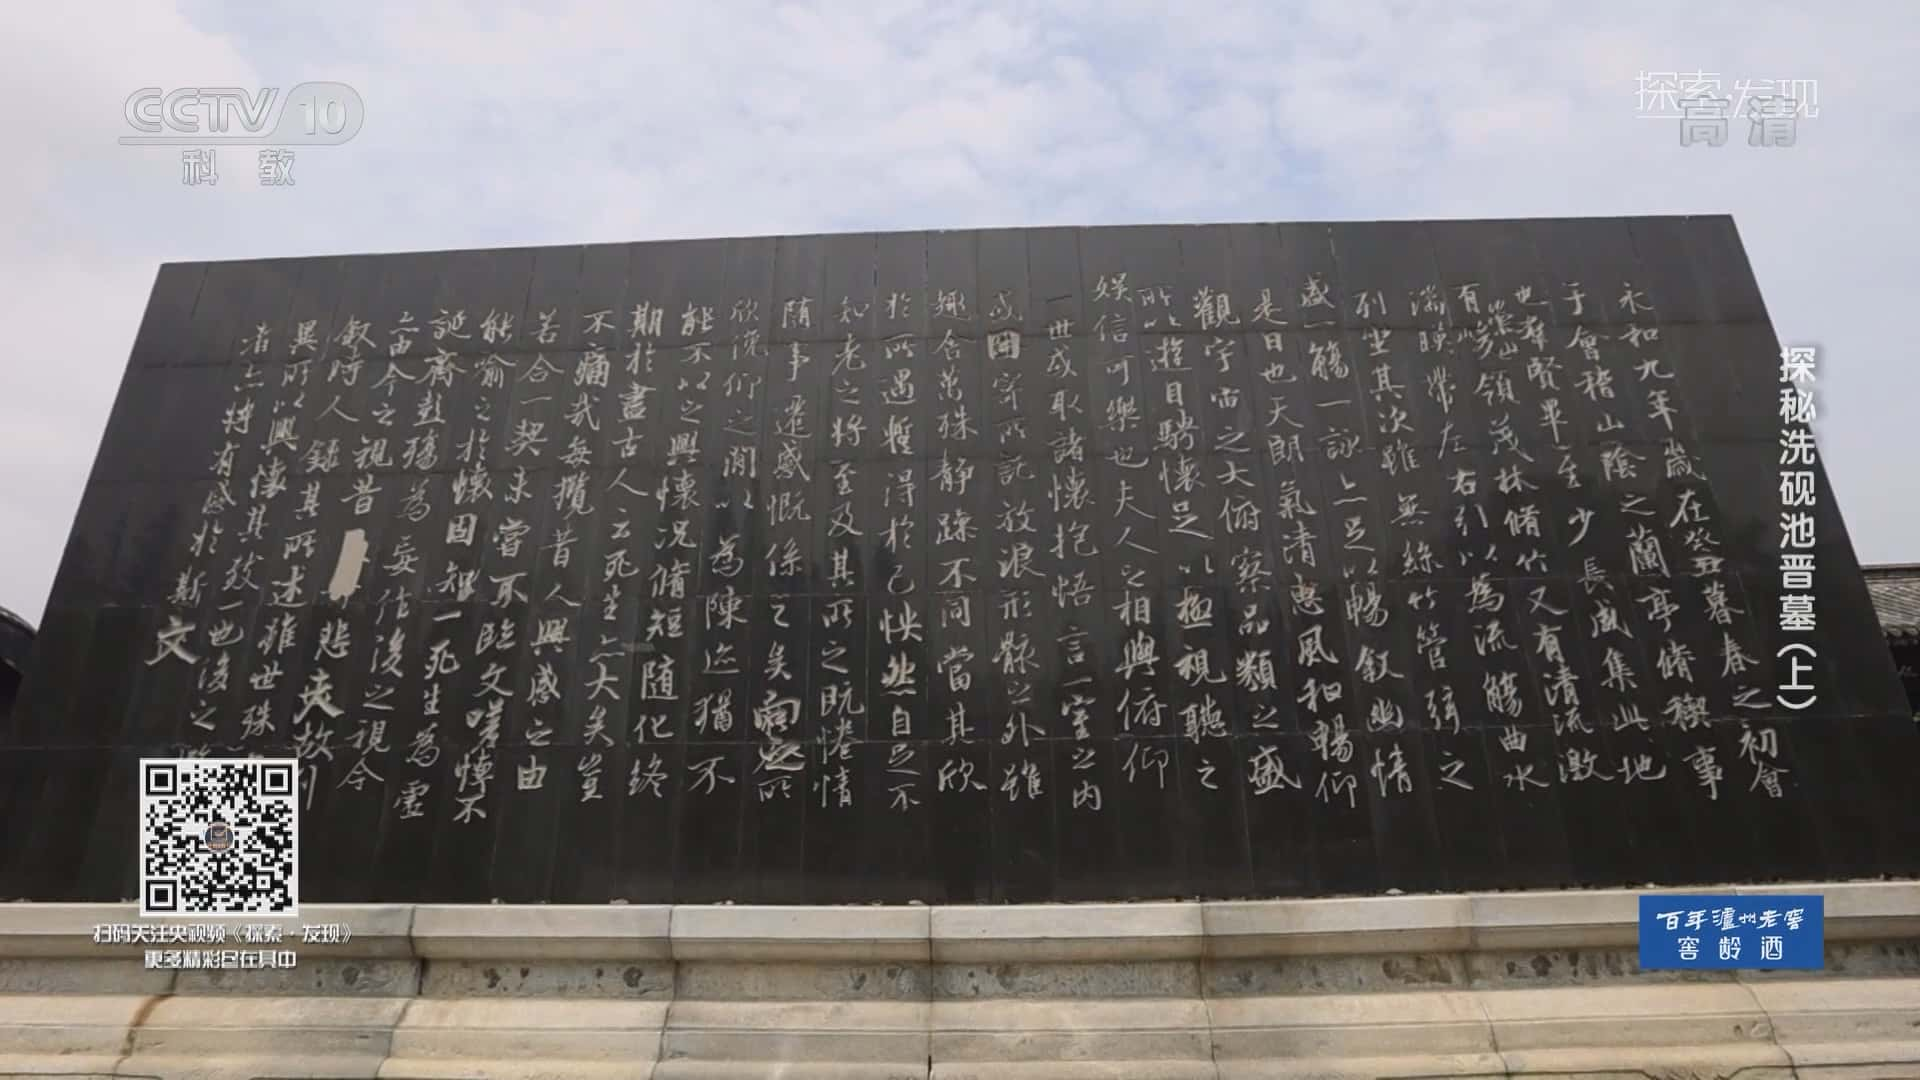 CCTV 10
科教
探索·发现
高清
永和九年歲在癸丑暮春之初會
于會稽山陰之蘭亭脩稧事
也羣賢畢至少長咸集此地
有崇山峻領茂林脩竹又有清流激
湍暎帶左右引以為流觴曲水
列坐其次雖無絲竹管弦之
盛一觴一詠亦足以暢敘幽情
是日也天朗氣清惠風和暢仰
觀宇宙之大俯察品類之盛
所以遊目騁懷足以極視聽之
娛信可樂也夫人之相與俯仰
一世或取諸懷抱悟言一室之內
或因寄所託放浪形骸之外雖
趣舍萬殊靜躁不同當其欣
於所遇蹔得於己怏然自足不
知老之將至及其所之既惓情
隨事遷感慨係之矣向之所
欣俛仰之閒以為陳迹猶不
能不以之興懷況脩短隨化終
期於盡古人云死生亦大矣豈
不痛哉每攬昔人興感之由
若合一契未嘗不臨文嗟悼不
能喻之於懷固知一死生為虛
誕齊彭殤為妄作後之視今
亦由今之視昔悲夫故列
敘時人錄其所述雖世殊
異所以興懷其致一也後之
者亦將有感於斯文
探秘洗砚池晋墓（上）
扫码关注央视频《探索·发现》
更多精彩尽在其中
百年泸州老窖
窖龄酒